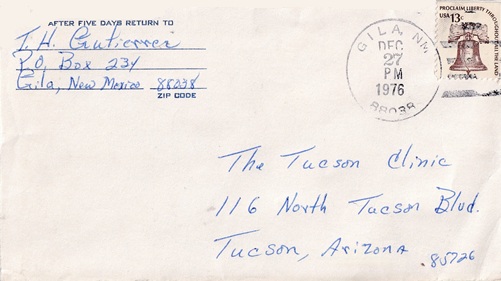 AFTER FIVE DAYS RETURN TO
T. H. Gutierrez
P.O. Box 234
Gila, New Mexico 88038
ZIP CODE
GILA, NM
DEC
27
PM
1976
88038
PROCLAIM LIBERTY THROUGHOUT ALL THE LAND
USA 13c
The Tucson Clinic
116 North Tucson Blvd.
Tucson, Arizona 85726